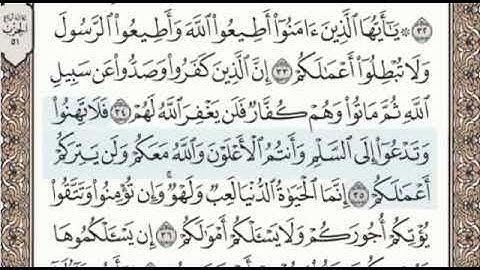 ٣٢ ۞ يَٰٓأَيُّهَا ٱلَّذِينَ ءَامَنُوٓا۟ أَطِيعُوا۟ ٱللَّهَ وَأَطِيعُوا۟ ٱلرَّسُولَ
وَلَا تُبْطِلُوٓا۟ أَعْمَٰلَكُمْ ٣٣ إِنَّ ٱلَّذِينَ كَفَرُوا۟ وَصَدُّوا۟ عَن سَبِيلِ
ٱللَّهِ ثُمَّ مَاتُوا۟ وَهُمْ كُفَّارٌ فَلَن يَغْفِرَ ٱللَّهُ لَهُمْ ٣٤ فَلَا تَهِنُوا۟
وَتَدْعُوٓا۟ إِلَى ٱلسَّلْمِ وَأَنتُمُ ٱلْأَعْلَوْنَ وَٱللَّهُ مَعَكُمْ وَلَن يَتِرَكُمْ
أَعْمَٰلَكُمْ ٣٥ إِنَّمَا ٱلْحَيَوٰةُ ٱلدُّنْيَا لَعِبٌ وَلَهْوٌ ۚ وَإِن تُؤْمِنُوا۟ وَتَتَّقُوا۟
يُؤْتِكُمْ أُجُورَكُمْ وَلَا يَسْـَٔلْكُمْ أَمْوَٰلَكُمْ ٣٦ إِن يَسْـَٔلْكُمُوهَا
الحزب
٥١